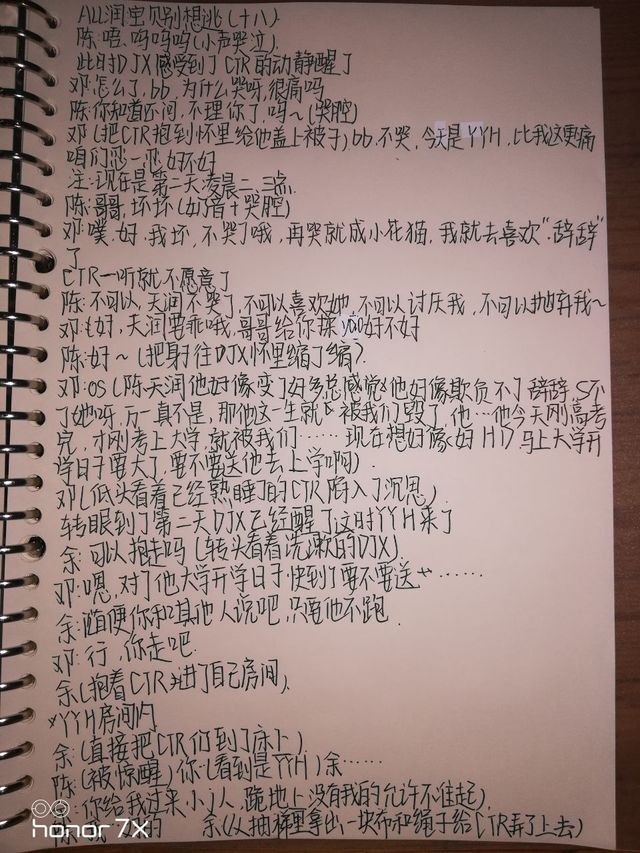 ALL润宝贝别想逃(十八)
陈:唔、呜呜呜(小声哭泣)
此时DJX感受到了CTR的动静醒了
邓:怎么了,bb,为什么哭呀,很痛吗
陈:你知道还问,不理你了,呜~(哭腔)
邓(把CTR抱到怀里给他盖上被子)bb不哭,今天是YYH,比我这更痛
咱们忍一忍好不好
注:现在是第二天凌晨二、三点
陈:哥哥,坏坏(奶音+哭腔)
邓:噗,好,我坏,不哭了哦,再哭就成小花猫,我就去喜欢"辞辞"
了
CTR一听就不愿意了
陈:不可以,天润不哭了,不可以喜欢她,不可以讨厌我,不可以抛弃我~
邓:好,天润要乖哦,哥哥给你揉yao好不好
陈:好~(把身往DJX怀里缩了缩)
邓:OS(陈天润他好像变了好多总感觉他好像欺负不了辞辞,
了她呀,万一真不是,那他这一生就被我们毁了,他…他今天刚高考
完,才刚考上大学,就被我们……现在想好像 马上大学开
学日子要大了,要不要送他去上学啊)
邓(低头看着已经熟睡了的CTR陷入了沉思)
转眼到了第二天DJX已经醒了这时YYH来了
余:可以抱走吗(转头看着洗漱的DJX)
邓:嗯,对了他大学开学日子快到了要不要送……
余:随便你和其他人说吧,只要他不跑
邓:行,你走吧
余(抱着CTR进了自己房间)
*YYH房间内
余(直接把CTR扔到了床上)
陈(被惊醒)你(看到是YYH)余……
:你给我过来,小J人,跪地上没有我的允许不准起)
余(从抽裤里拿出一块布和绳子给CTR弄了上去)
honor 7X